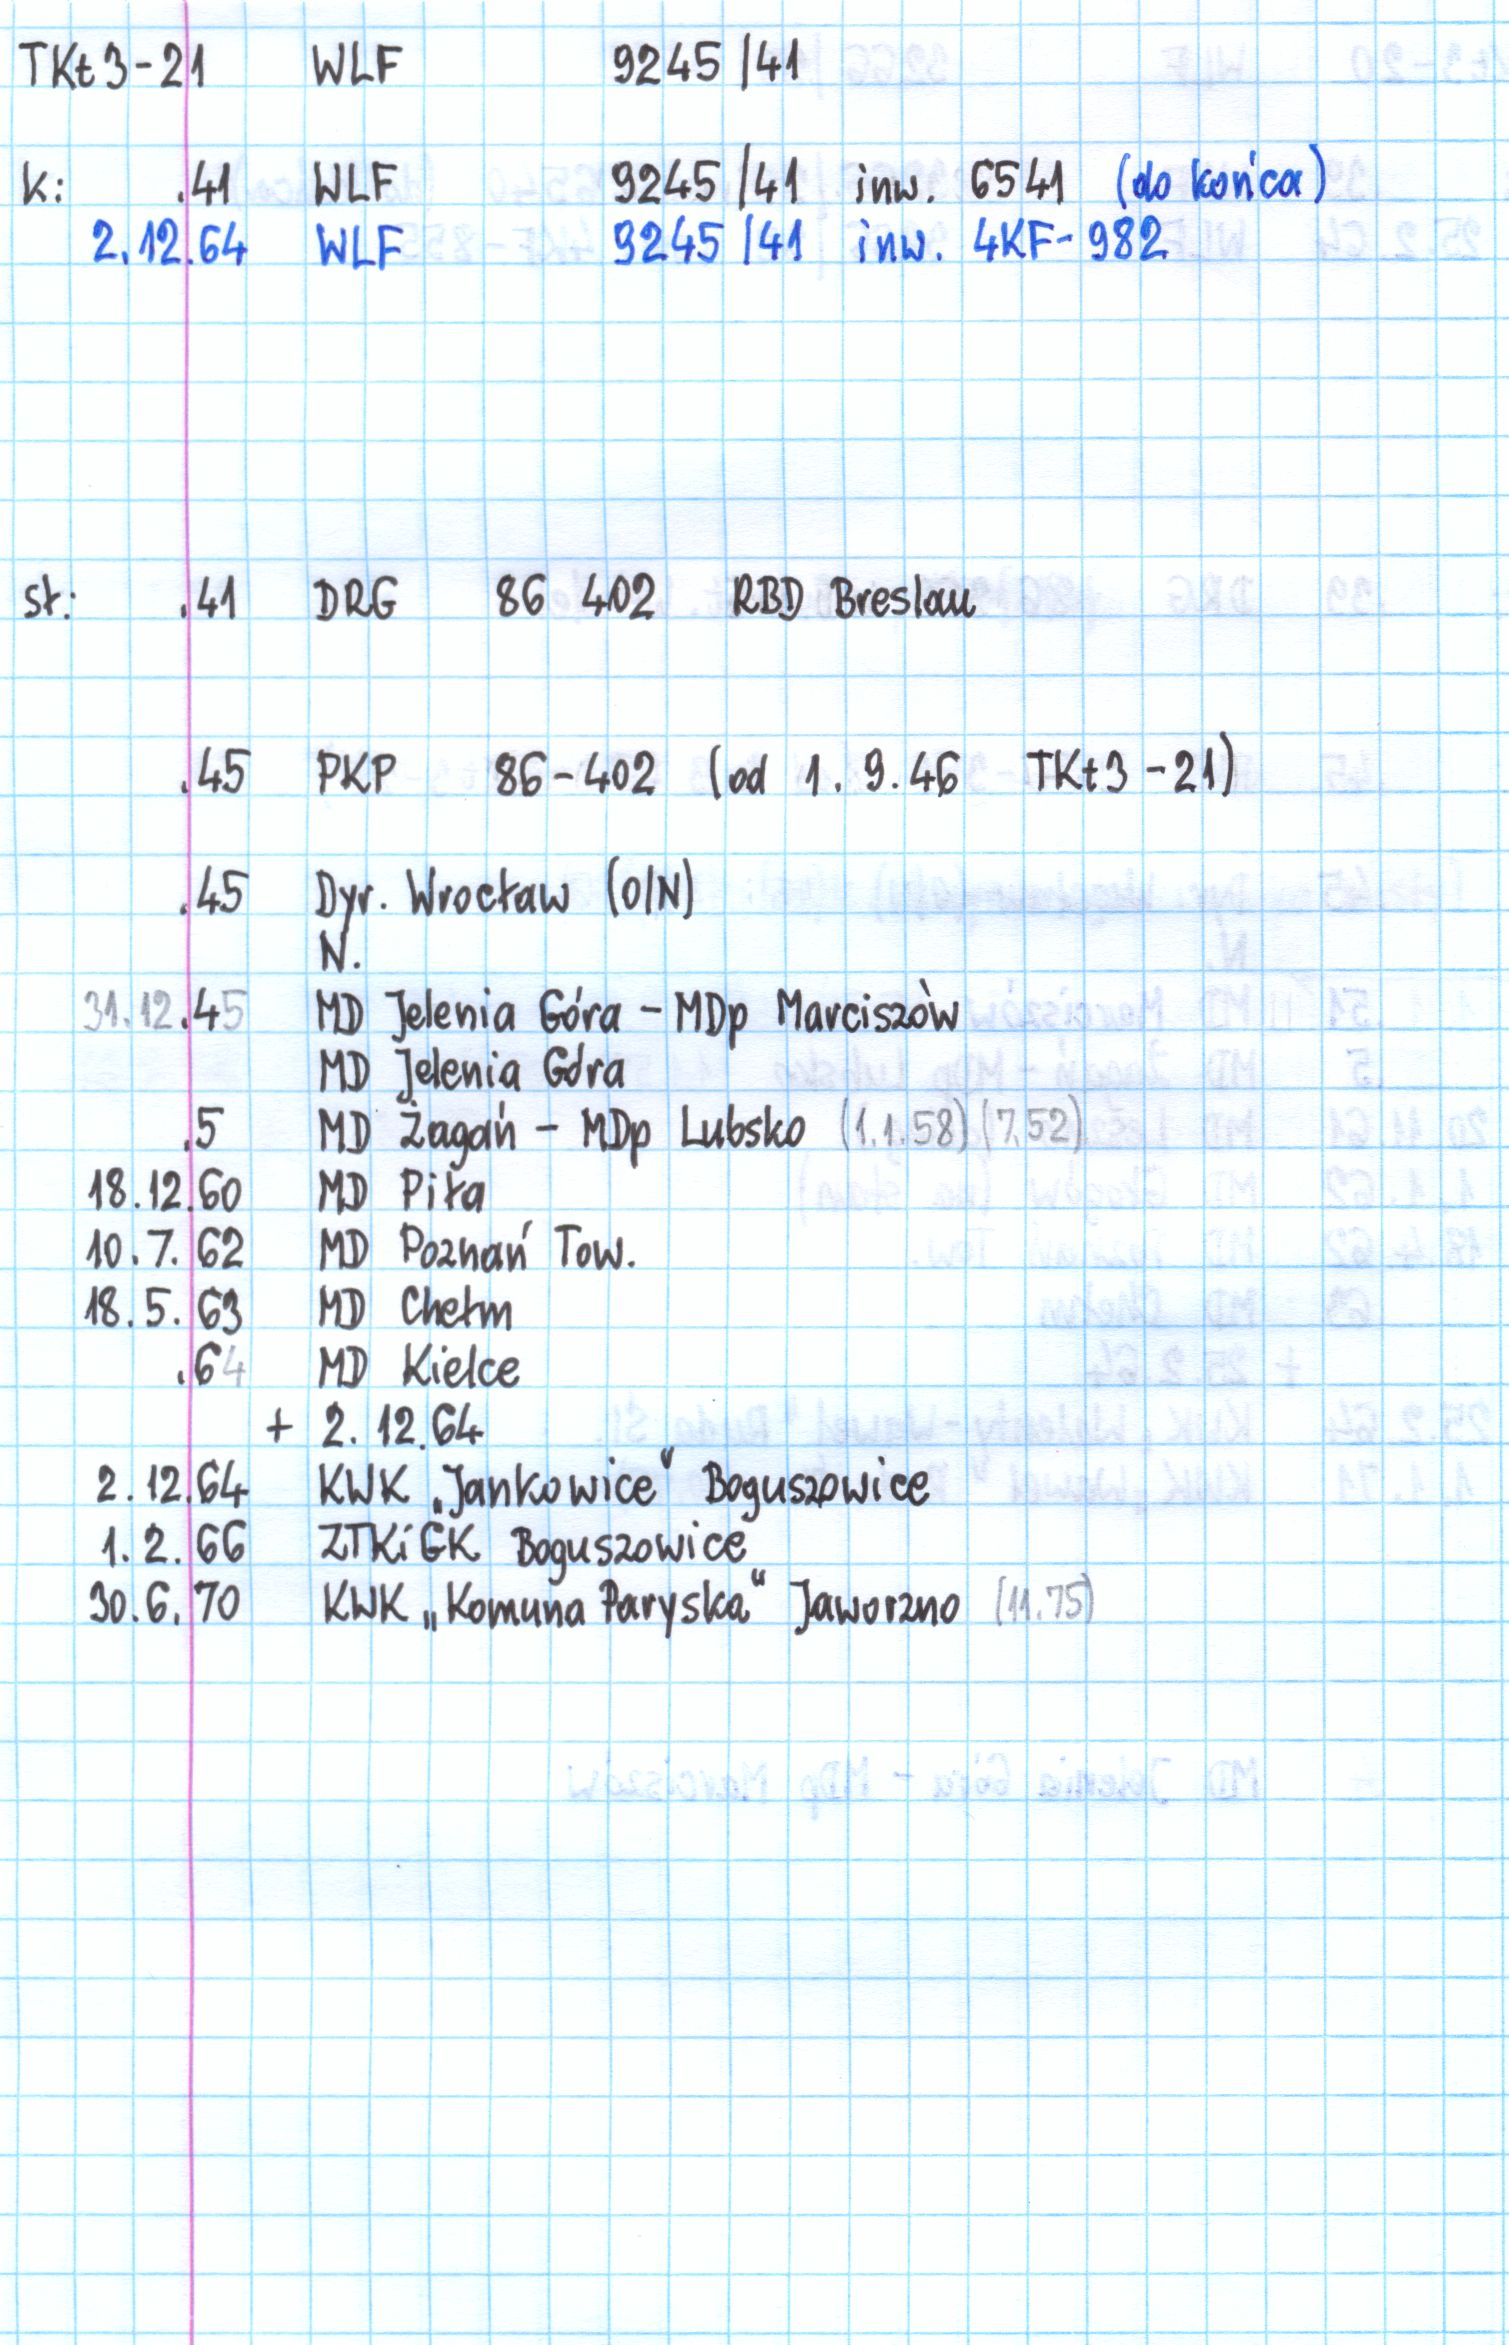 TKt3-21 WLF 9245/41
k: .41 WLF 9245/41 inw. 6541 (do końca)
2.12.64 WLF 9245/41 inw. 4KF-982
st: .41 DRG 86 402 RBD Breslau
.45 PKP 86-402 (od 1.9.46 TKt3-21)
.45 Dyr. Wrocław (O/N)
N.
31.12.45 MD Jelenia Góra - MDp Marciszów
MD Jelenia Góra
.5 MD Żagań - MDp Lubsko (1.1.58) (7.52)
18.12.60 MD Piła
10.7.62 MD Poznań Tow.
18.5.63 MD Chełm
.64 MD Kielce
+ 2.12.64
2.12.64 KWK „Jankowice" Boguszowice
1.2.66 ZTKiGK Boguszowice
30.6.70 KWK „Komuna Paryska" Jaworzno (11.75)